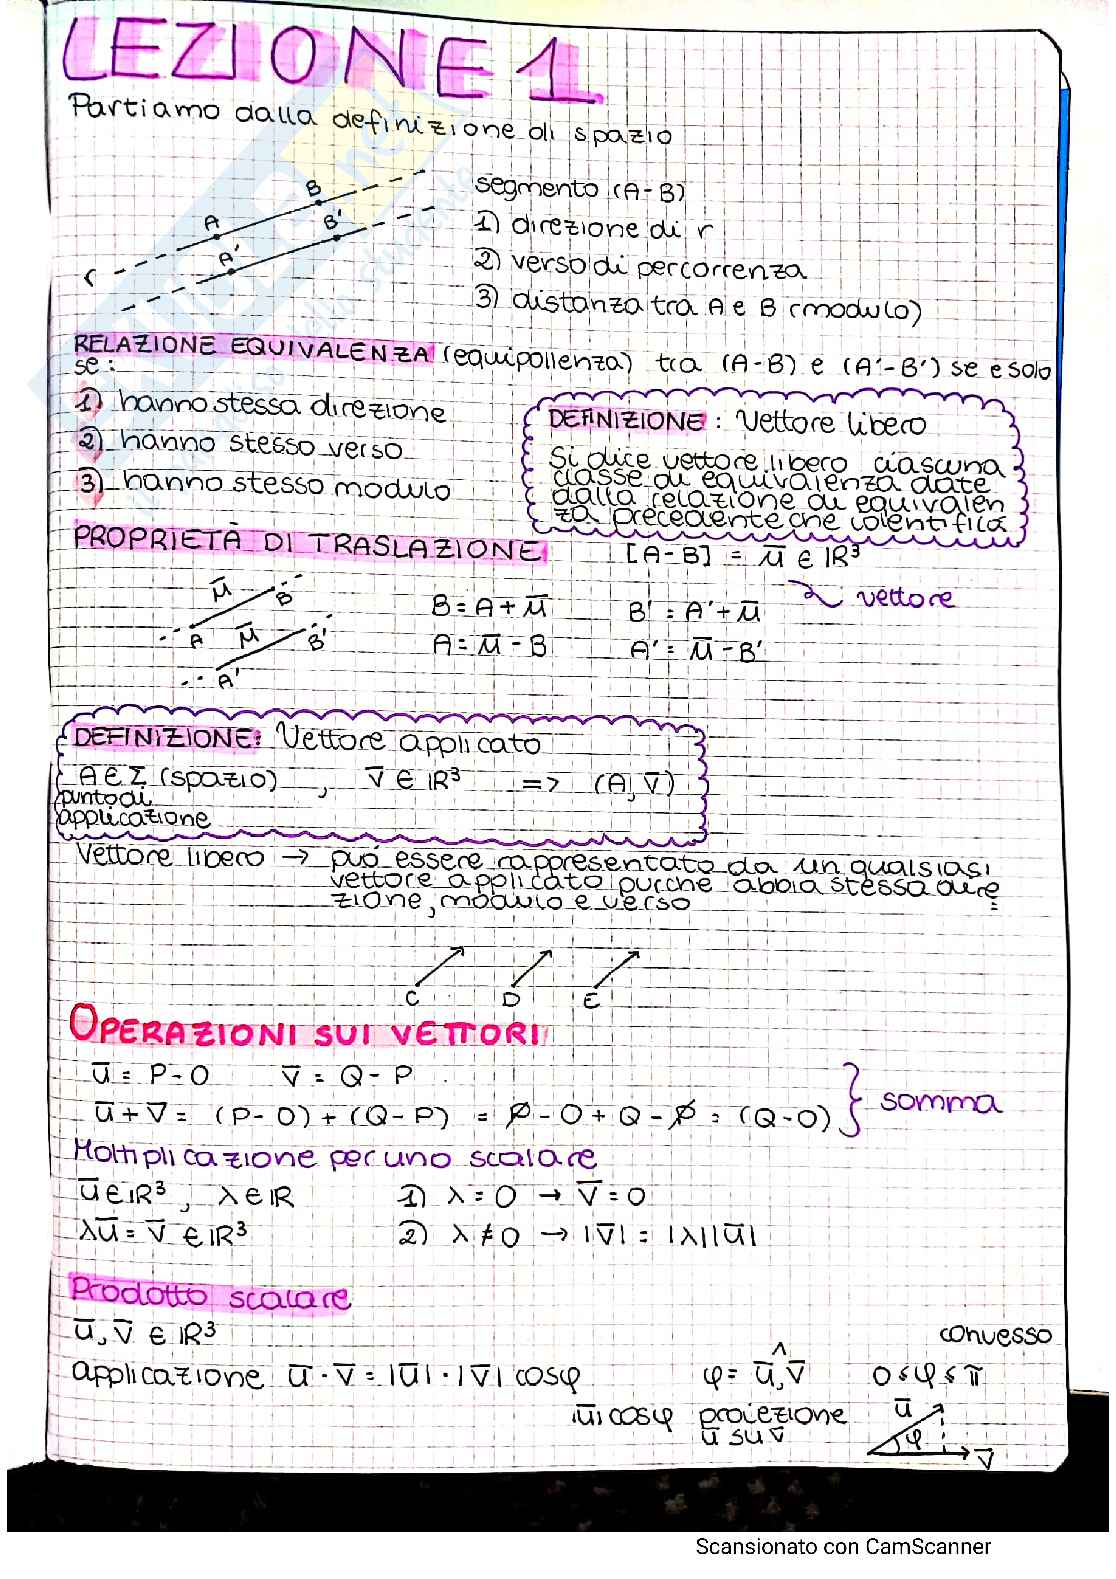 LEZIONE 1
Partiamo dalla definizione di spazio
segmento (A-B)
1) direzione di r
2) verso di percorrenza
3) distanza tra A e B (modulo)
r A B A' B'
RELAZIONE EQUIVALENZA (equipollenza) tra (A-B) e (A'-B') se e solo
se:
1) hanno stessa direzione
2) hanno stesso verso
3) hanno stesso modulo
DEFINIZIONE: Vettore libero
Si dice vettore libero ciascuna
classe di equivalenza date
dalla relazione di equivalen
za precedente che identifica
[A-B] = u̅ ∈ ℝ³
vettore
PROPRIETÀ DI TRASLAZIONE
u̅ A B u̅ A' B'
B = A + u̅ B' = A' + u̅
A = u̅ - B A' = u̅ - B'
DEFINIZIONE: Vettore applicato
A ∈ Σ (spazio) , v̅ ∈ ℝ³ => (A, v̅)
punto di
applicazione
Vettore libero → può essere rappresentato da un qualsiasi
vettore applicato purché abbia stessa dire
zione, modulo e verso
C D E
OPERAZIONI SUI VETTORI
u̅ = P-O v̅ = Q-P
u̅ + v̅ = (P-O) + (Q-P) = P - O + Q - P = (Q-O) } somma
Moltiplicazione per uno scalare
u̅ ∈ ℝ³, λ ∈ ℝ 1) λ = 0 → v̅ = 0
λu̅ = v̅ ∈ ℝ³ 2) λ ≠ 0 → |v̅| = |λ||u̅|
Prodotto scalare
u̅, v̅ ∈ ℝ³
convesso
applicazione u̅ · v̅ = |u̅| · |v̅| cosφ φ = u̅,^v̅ 0 ≤ φ ≤ π
|u̅| cosφ proiezione
u̅ su v̅
u̅ φ v̅
Scansionato con CamScanner